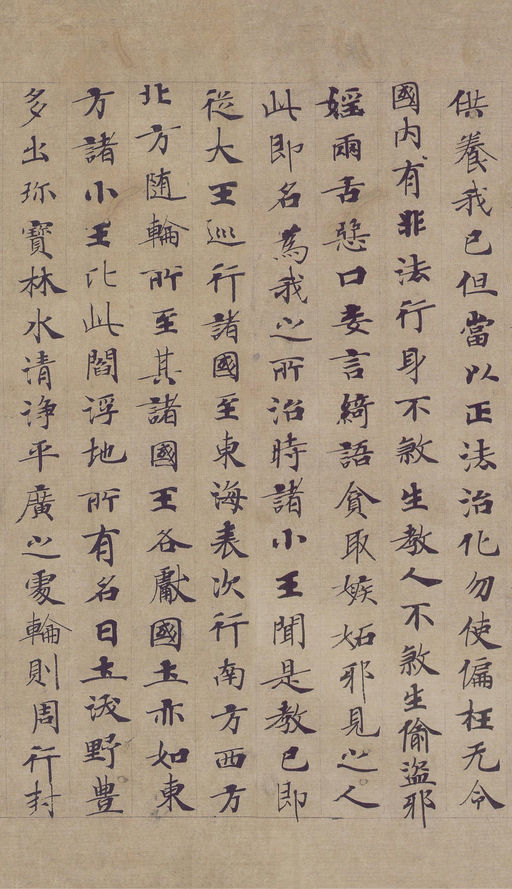 供養我已但當以正法治化勿使偏枉无令
國内有非法行身不煞生教人不煞生偷盗邪
婬兩舌惡口妄言綺語貪取嫉妬邪見之人
此即名為我之所治時諸小王聞是教已即
從大王巡行諸國至東海表次行南方西方
北方随輪所至其諸國王各獻國土亦如東
方諸小王比此閻浮地所有名曰土沃野豊
多出珎寶林水清浄平廣之處輪則周行封